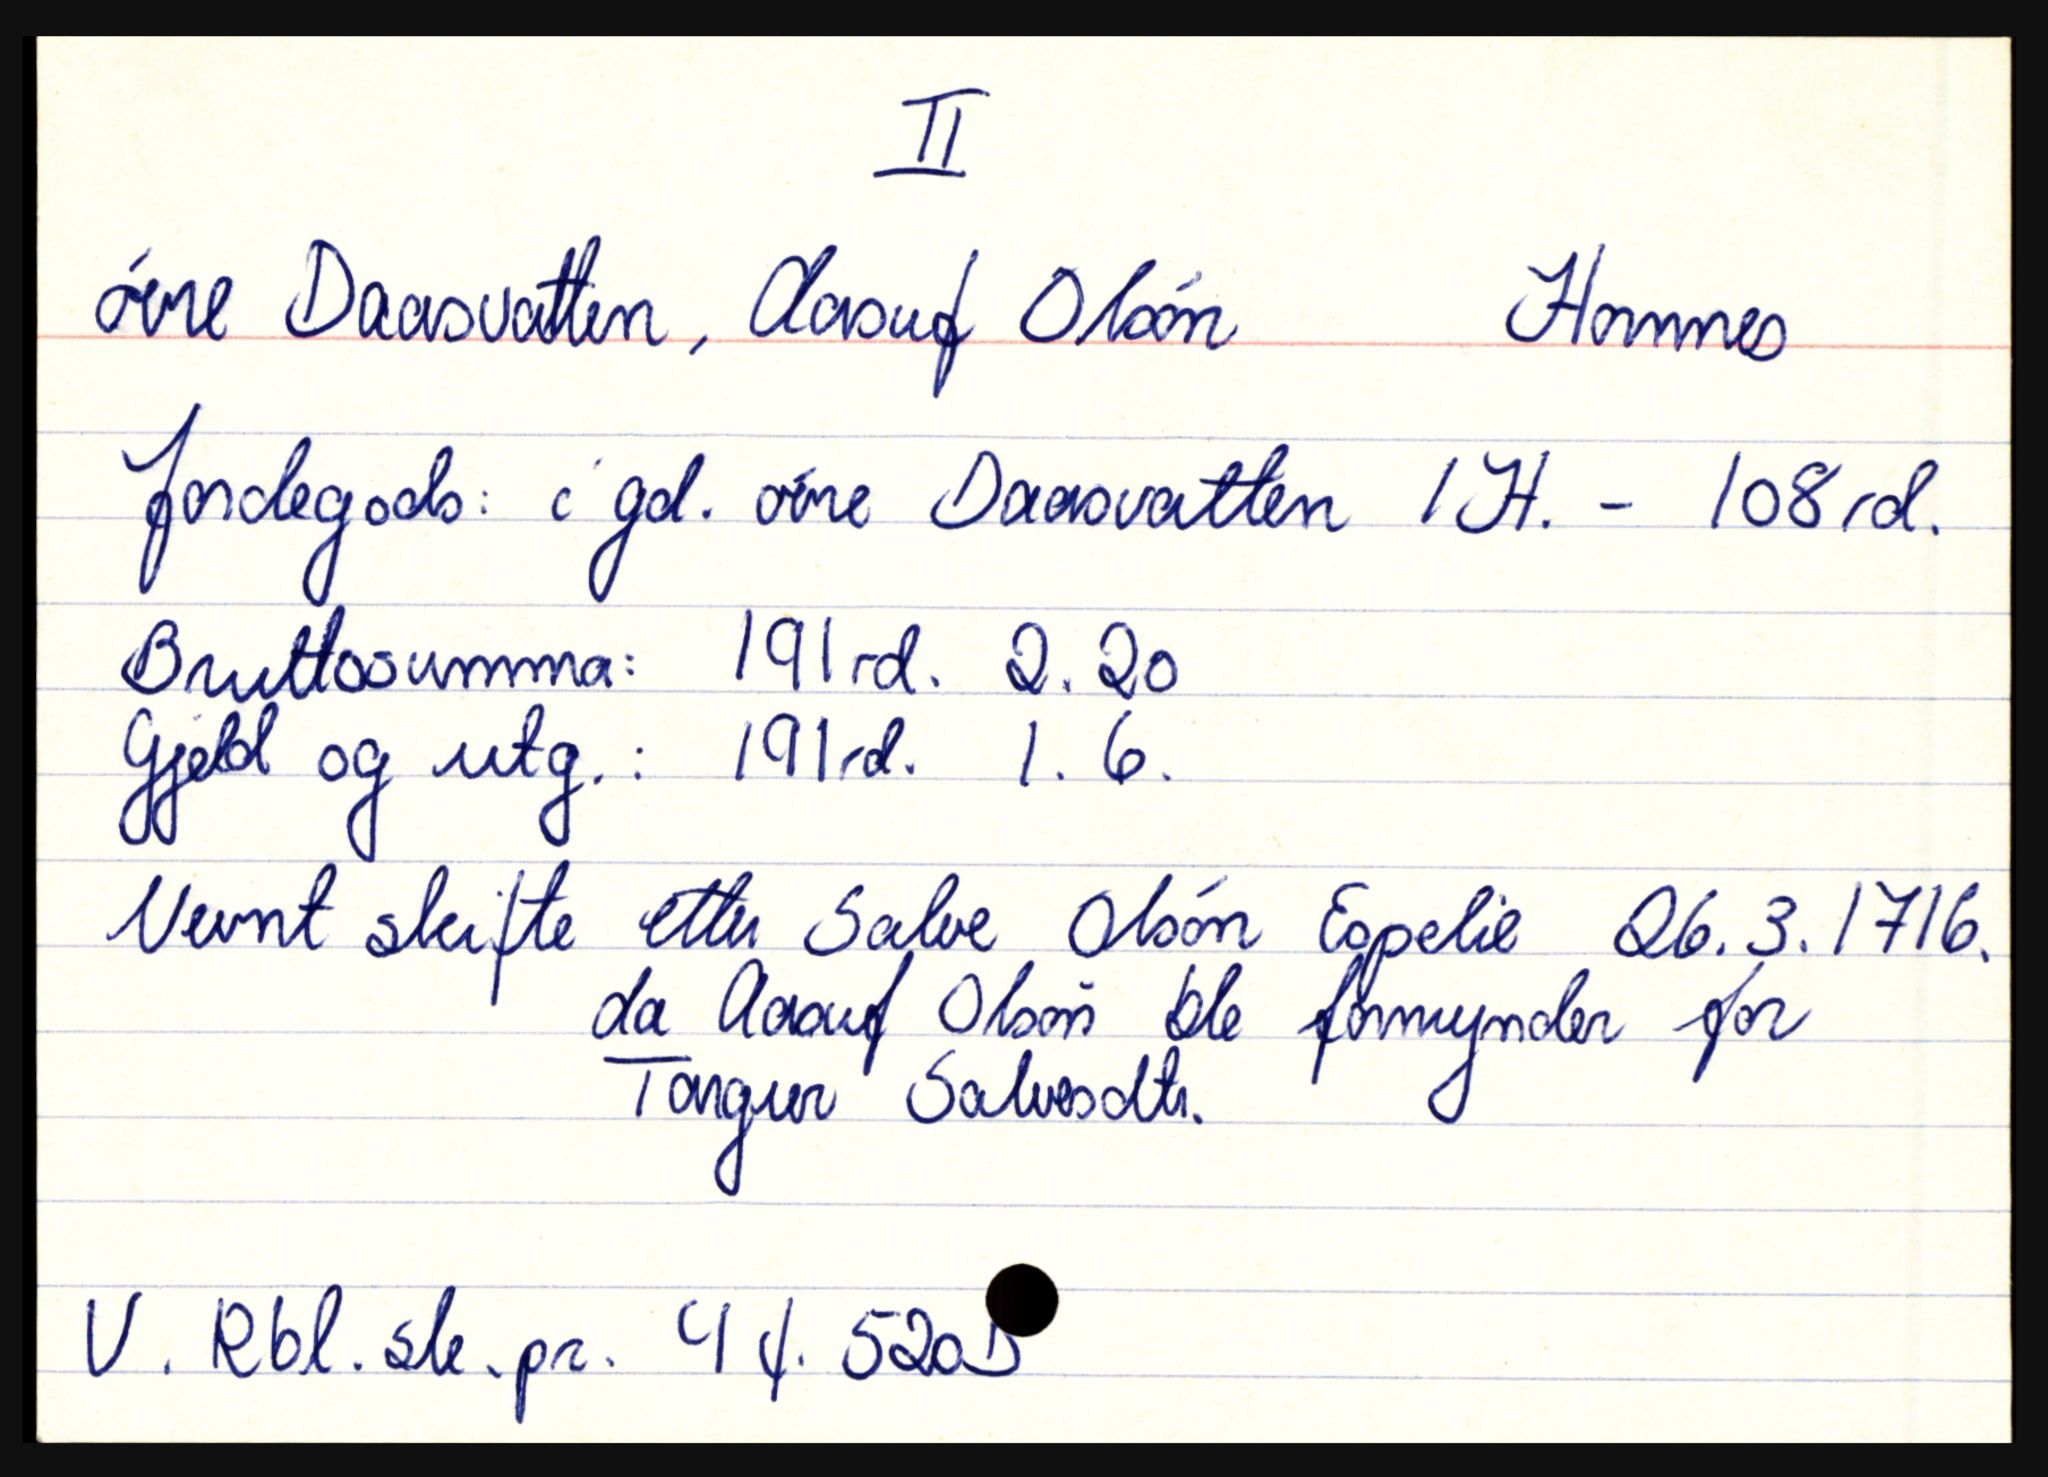 II
övre Daasvatten, Aasuf Olsón Hornnes
Jordegods: i gd. övre Daasvatten 1 H. - 108 rd.
Bruttosumma: 191 rd. 2. 20
Gjeld og utg.: 191 rd. 1. 6.
Nevnt skifte etter Salve Olsón Espelie 26.3.1716.
da Aasuf Olsón ble formynder for
Torgur Salvesdtr.
V. Rbl. sk. pr. 4 f. 520 b